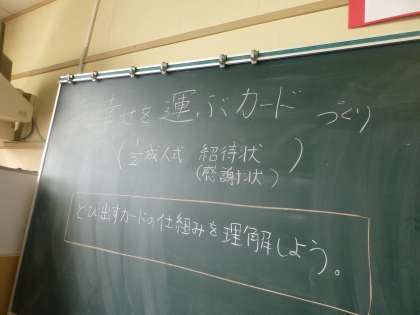 幸せを運ぶカードづくり
(½成人式 紹待状)
(感謝状)
とび出すカードの仕組みを理解しよう。